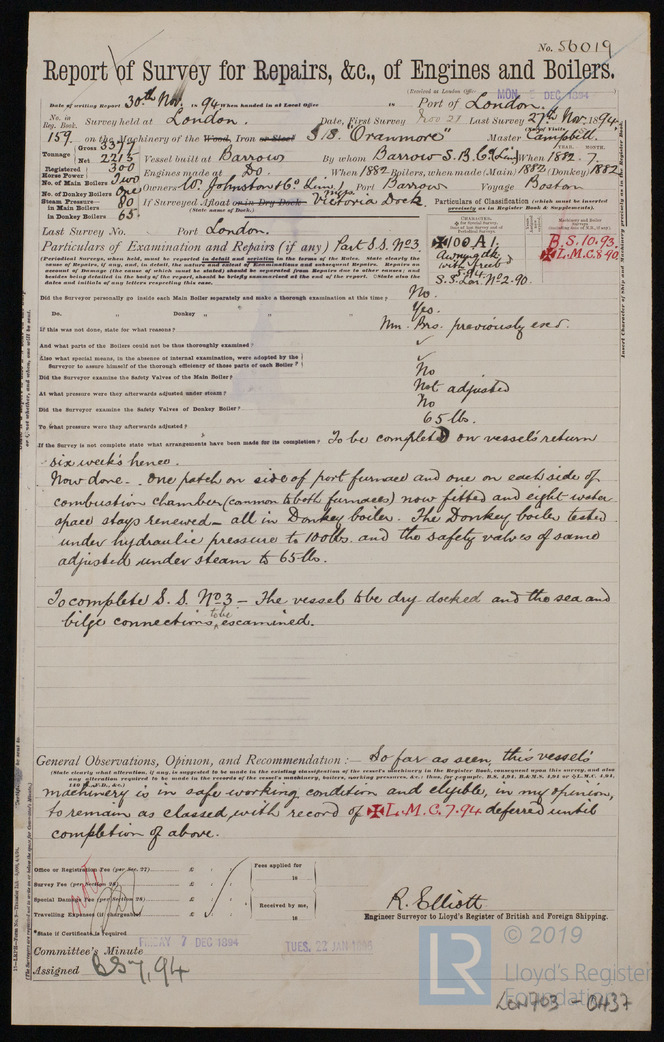 No. 56019
Report of Survey for Repairs, &c., of Engines and Boilers.
(Received at London Office MON. DEC 1894
Date of writing Report 30th Nov. 1894 When handed in at Local Office 18 Port of London.
No. in Reg. Book. Survey held at London. Date, First Survey Nov 21 Last Survey 27th Nov. 1894.
(No. of Visits
159. on the Machinery of the Wood, Iron or Steel S.S. "Oranmore" Master Campbell.
Tonnage Gross 3377 Net 2213 Vessel built at Barrow By whom Barrow S. B. Co. (Lim) When 1882. 7.
YEAR. MONTH.
Registered Horse Power 300 Engines made at Do. When 1882 Boilers, when made (Main) 1882 (Donkey) 1882
No. of Main Boilers
No. of Donkey Boilers One Owners W. Johnston & Co. Lim Port Barrow Voyage Boston
Steam Pressure in Main Boilers 80 If Surveyed Afloat or in Dry Dock Victoria Dock.
(State name of Dock.)
in Donkey Boilers 65.
Particulars of Classification (which must be inserted precisely as in Register Book & Supplements).
Last Survey No. Port London.
Particulars of Examination and Repairs (if any) Part S.S. No. 3.
✠100 A1.
Awng dk
with freeb
5.94
S.S. Lon. No. 2-90.
B.S. 10.93.
✠L.M.C. 8.90.
(Periodical Surveys, when held, must be reported in detail and seriatim in the terms of the Rules. State clearly the cause of Repairs, if any, and, in detail, the nature and extent of Examinations and subsequent Repairs. Repairs on account of Damage (the cause of which must be stated) should be separated from Repairs due to other causes; and besides being detailed in the body of the report, should be briefly summarised at the end of the report. State also the dates and initials of any letters respecting this case.
Did the Surveyor personally go inside each Main Boiler separately and make a thorough examination at this time? No.
Do. " Donkey " " " Yes.
If this was not done, state for what reasons? Mn. Brs. previously exd.
And what parts of the Boilers could not be thus thoroughly examined? ✓
Also what special means, in the absence of internal examination, were adopted by the Surveyor to assure himself of the thorough efficiency of these parts of each Boiler? ✓
Did the Surveyor examine the Safety Valves of the Main Boiler? No
At what pressure were they afterwards adjusted under steam? Not adjusted
Did the Surveyor examine the Safety Valves of Donkey Boiler? No
To what pressure were they afterwards adjusted? 65 lbs.
If the Survey is not complete state what arrangements have been made for its completion? To be completed on vessel's return
six weeks hence.
Now done.- One patch on side of port furnace and one on each side of
combustion chamber (common to both furnaces) now fitted and eight water
space stays renewed - all in Donkey boiler. The Donkey boiler tested
under hydraulic pressure to 100 lbs. and the safety valves of same
adjusted under steam to 65 lbs.
To complete S.S. No. 3 - The vessel to be dry docked and the sea and
bilge connections, to be examined.
General Observations, Opinion, and Recommendation :- So far as seen, this vessel's
(State clearly what alteration, if any, is suggested to be made in the existing classification of the vessel's machinery in the Register Book, consequent upon this survey, and also any alteration required to be made in the records of the vessel's machinery, boilers, working pressures, &c.; thus, for example, B.S. 4,94, B.&M.S. 4,94 or ✠L.M.C. 4,94, 140 lb., F.D., &c.)
machinery is in safe working condition and eligible, in my opinion,
to remain as classed, with record of ✠L.M.C. 7.94 deferred until
completion of above.
Office or Registration Fee (per Sec. 27) £
Survey Fee (per Section 28) £
Special Damage Fee (per Section 28) £
Travelling Expenses (if chargeable) £
Fees applied for
18
Received by me,
18
R. Elliott
Engineer Surveyor to Lloyd's Register of British and Foreign Shipping.
*State if Certificate is required
Committee's Minute FRIDAY 7 DEC 1894 TUES. 22 JAN 1895
Assigned BS 7, 94
LR © 2019
Lloyd's Register
Foundation
LON703 - 0437